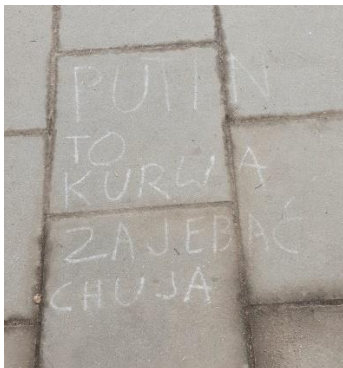 PUTIN
TO
KURWA
ZAJEBAĆ
CHUJA